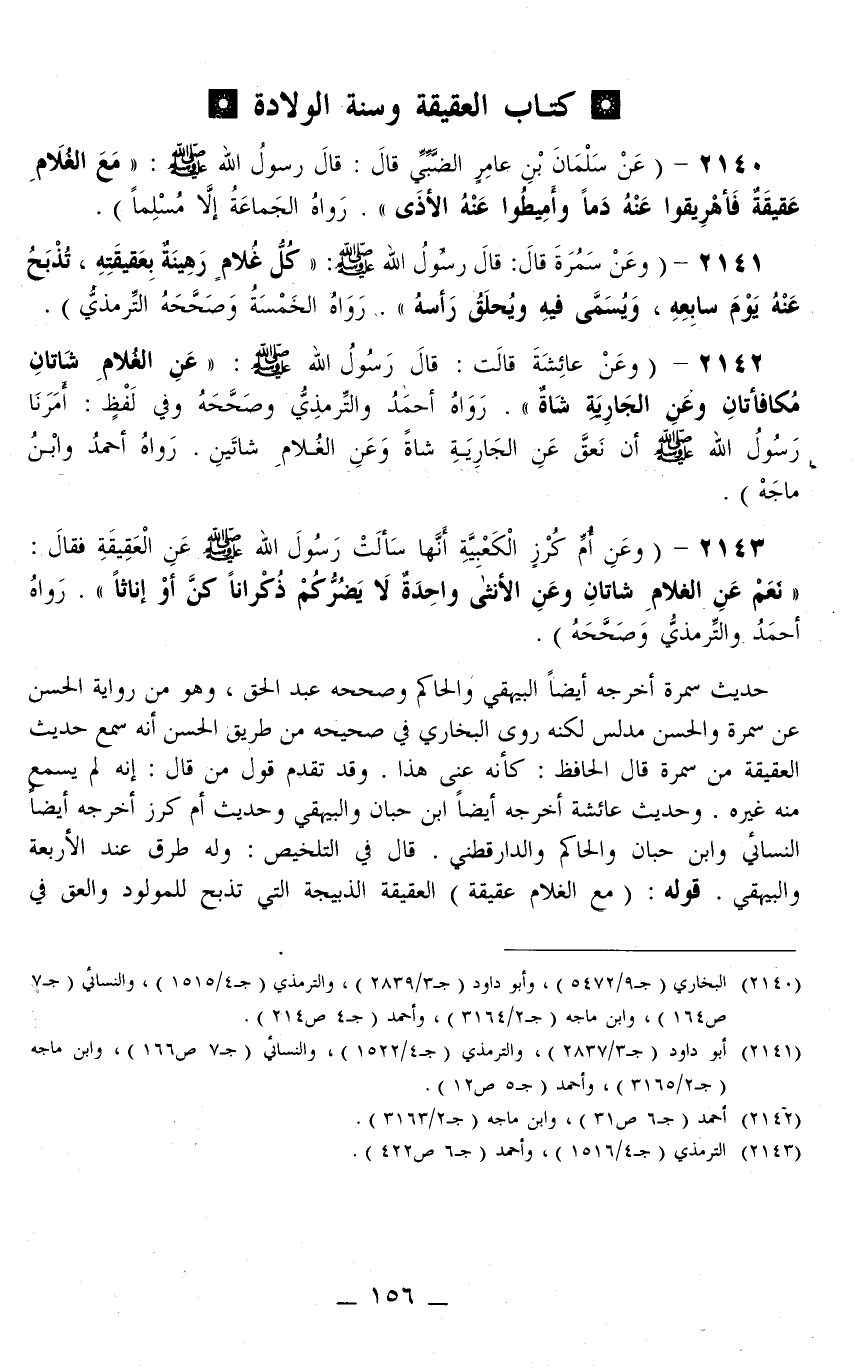 كتاب العقيقة وسنة الولادة
٢١٤٠ – ( عَنْ سَلْمَانَ بْنِ عامِرٍ الضَّبِّيِّ قالَ : قالَ رسولُ الله ﷺ : « مَعَ الغُلَامِ
عَقيقَةٌ فَأهْرِيقوا عَنْهُ دَماً وأَمِيطُوا عَنْهُ الأذَى » . رَواهُ الجَماعَةُ إلَّا مُسْلِماً ) .
٢١٤١ – ( وعَنْ سَمُرَةَ قالَ: قالَ رسُولُ الله ﷺ: « كُلُّ غُلَامٍ رَهِينَةٌ بِعَقيقَتِهِ ، تُذْبَحُ
عَنْهُ يَوْمَ سابِعِهِ ، وَيُسَمَّى فيهِ ويُحلَقُ رَأسهُ » . رَوَاهُ الخَمْسَةُ وَصَحَّحَهُ التِّرمذيُّ ) .
٢١٤٢ – ( وعَنْ عائِشَةَ قالَت : قالَ رَسُولُ الله ﷺ : « عَنِ الغُلامِ شَاتانِ
مُكافأتانِ وعَنِ الجَارِيَةِ شاةٌ » . رَوَاهُ أحمَدُ والتِّرمذِيُّ وصَحَّحَهُ وفي لَفْظٍ : أَمَرَنَا
رَسُولُ الله ﷺ أن نَعقَّ عَنِ الجَارِيَةِ شاةً وَعَنِ الغُلامِ شاتَينِ . رَواهُ أحمدُ وابْنُ
ماجَهْ ) .
٢١٤٣ – ( وعَنِ أُمِّ كُرْزٍ الْكَعْبِيَّةِ أَنَّها سَألَتْ رَسُولَ الله ﷺ عَنِ الْعَقِيقَةِ فقالَ :
« نَعَمْ عَنِ الغلامِ شاتان وعَنِ الأنثى واحِدَةٌ لَا يَضرُّكُمْ ذُكْراناً كنَّ أوْ إناثاً » . رَواهُ
أحمَدُ والتِّرمذيُّ وَصَحَّحَهُ ) .
حديث سمرة أخرجه أيضاً البيهقي والحاكم وصححه عبد الحق ، وهو من رواية الحسن
عن سمرة والحسن مدلس لكنه روى البخاري في صحيحه من طريق الحسن أنه سمع حديث
العقيقة من سمرة قال الحافظ : كأنه عنى هذا . وقد تقدم قول من قال : إنه لم يسمع
منه غيره . وحديث عائشة أخرجه أيضاً ابن حبان والبيهقي وحديث أم كرز أخرجه أيضاً
النسائي وابن حبان والحاكم والدارقطني . قال في التلخيص : وله طرق عند الأربعة
والبيهقي . قوله : ( مع الغلام عقيقة ) العقيقة الذبيجة التي تذبح للمولود والعق في
(٢١٤٠) البخاري ( جـ٥٤٧٢/٩ ) ، وأبو داود ( جـ٢٨٣٩/٣ ) ، والترمذي ( جـ١٥١٥/٤ ) ، والنسائي ( جـ٧
ص١٦٤ ) ، وابن ماجه ( جـ٣١٦٤/٢ ) ، وأحمد ( جـ٤ ص٢١٤ ) .
(٢١٤١) أبو داود ( جـ٢٨٣٧/٣ ) ، والترمذي ( جـ١٥٢٢/٤ ) ، والنسائي ( جـ٧ ص١٦٦ ) ، وابن ماجه
( جـ٣١٦٥/٢ ) ، وأحمد ( جـ٥ ص١٢ ) .
(٢١٤٢) أحمد ( جـ٦ ص٣١ ) ، وابن ماجه ( جـ٣١٦٣/٢ ) .
(٢١٤٣) الترمذي ( جـ١٥١٦/٤ ) ، وأحمد ( جـ٦ ص٤٢٢ ) .
– ١٥٦ –